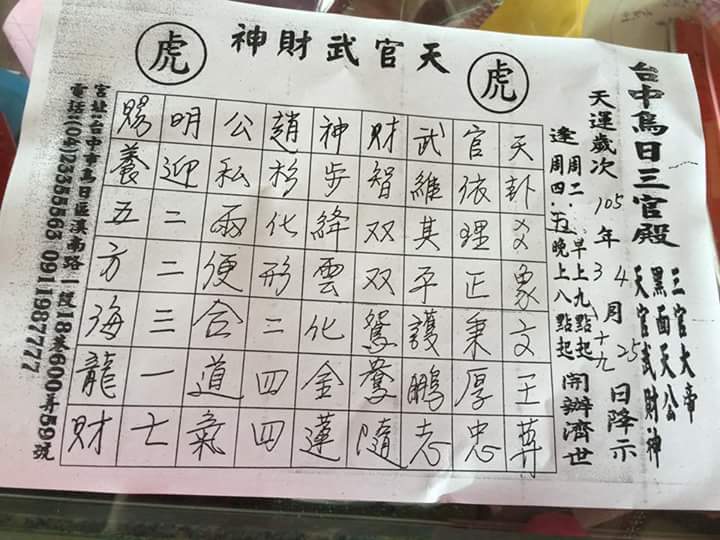 天官武財神
虎
虎
台中烏日三官殿
三官大帝
黑面天公
天官武財神
天運歲次105年3 4月十九 25日降示
逢周二．早上九點起
周四．五晚上八點起
開辦濟世
天卦爻象文王算
官依理正秉厚忠
武維其平護鵬志
財智双双鴛鴦隨
神步絳雲化金蓮
趙杉化形二四四
公私兩便合道氣
明迎二二三一七
賜養五方海龍財
宮址:台中市烏日區溪南路一段18巷600弄59號
電話:(04)23355563 0911987777